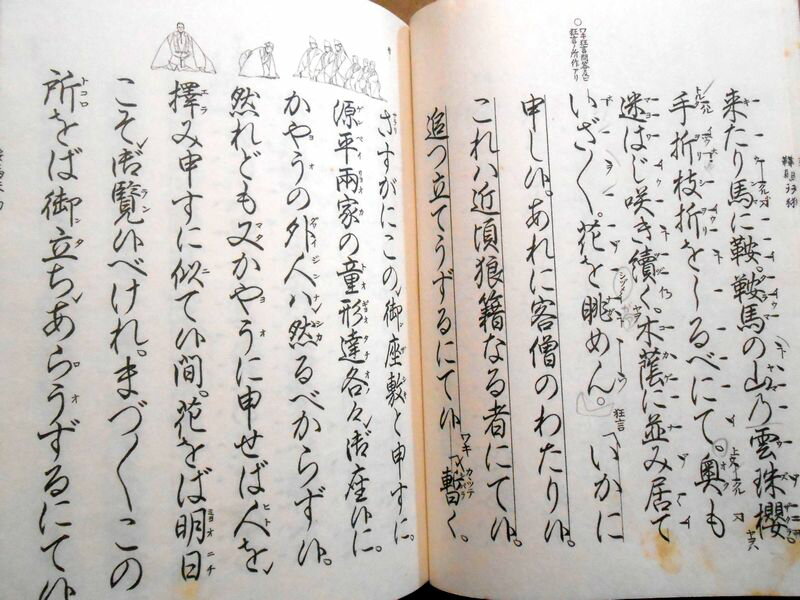 来たり馬に鞍。鞍馬の山乃雲珠櫻。
手折枝折を〜るべにて。奥も
迷はじ咲き續く。木蔭に並み居て
いざ〱。花を眺めん。狂言「いかに
申し候。あれに客僧のわたり候。
これハ近頃狼籍なる者にて候。
追つ立てうずるにて候ワキ「暫く。
○ワキ狂言問答及ビ
狂言ノ所作アリ
さすがにこの御座敷と申すに。
源平兩家の童形達各々御座候に。
かやうの外人ハ然るべからず候。
然れども又かやうに申せば人を
擇み申すに似て候間。花をば明日
こそ御覧候べけれ。まづ〱この
所をば御立ちあらうずるにて候